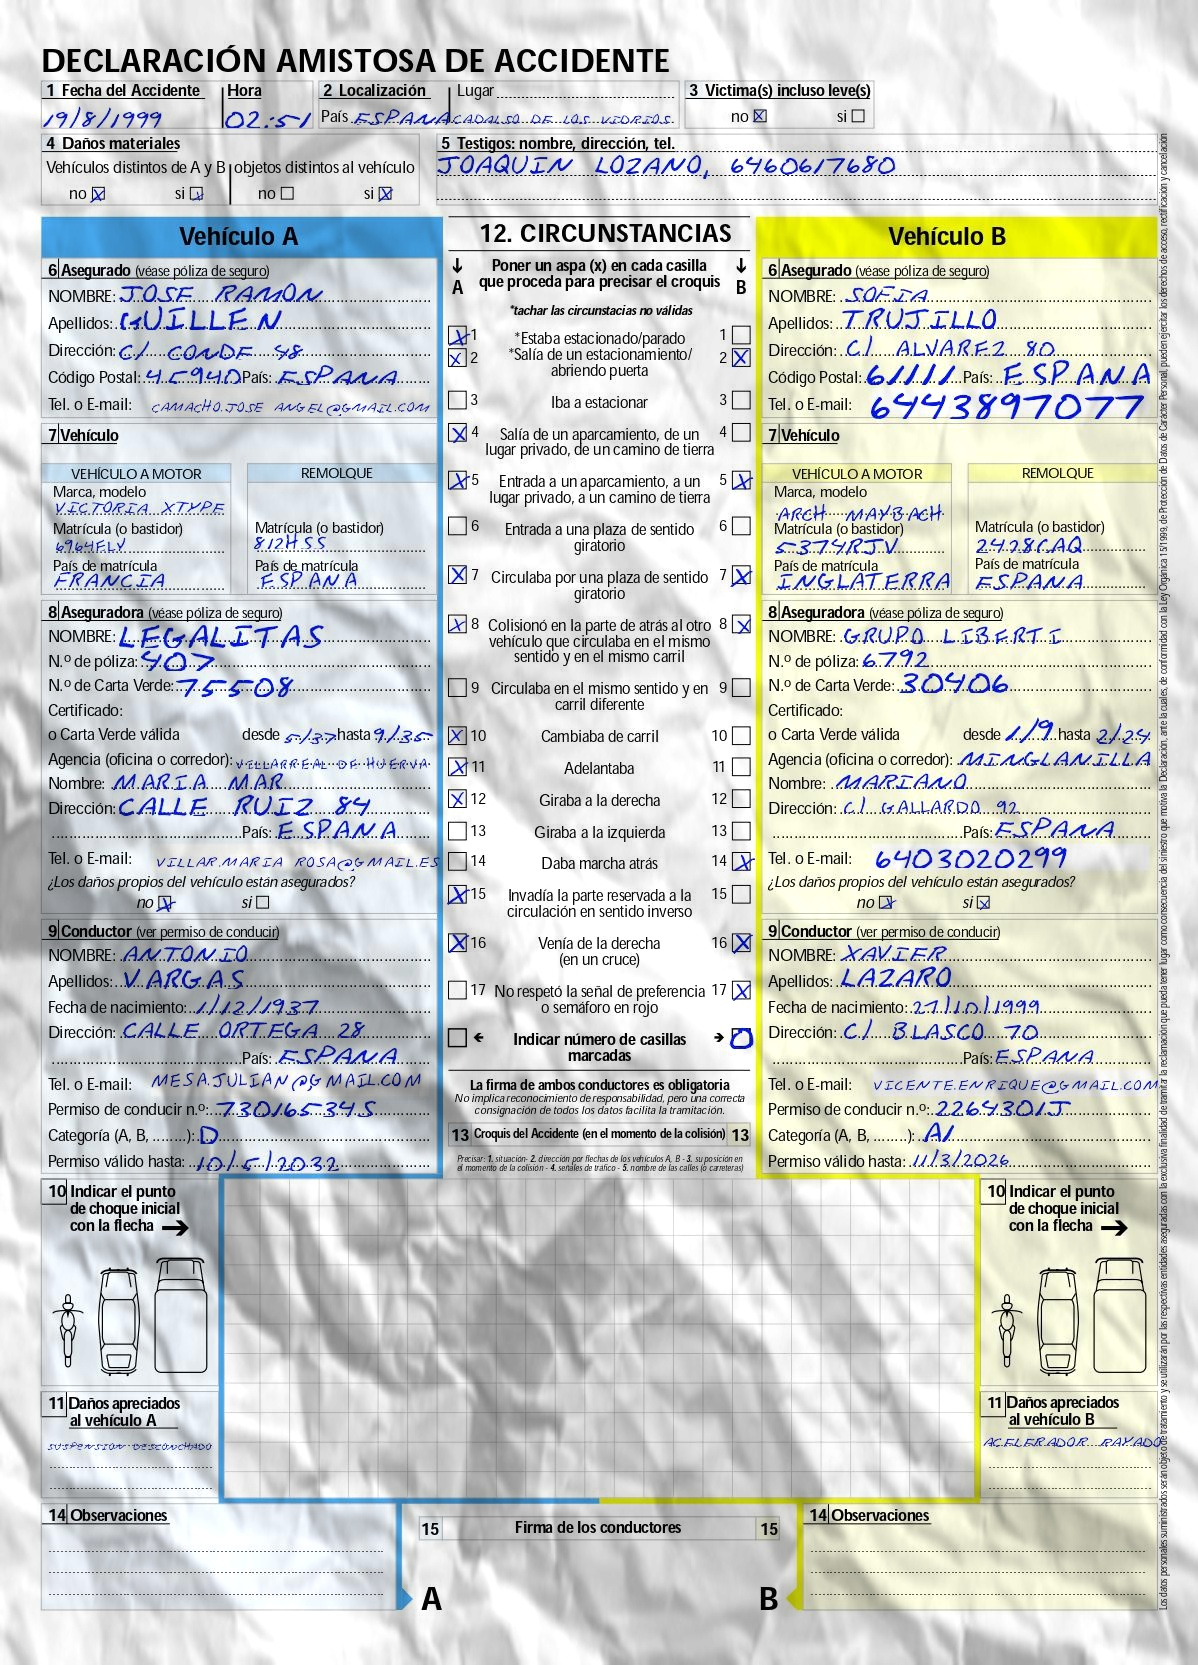 DECLARACIÓN AMISTOSA DE ACCIDENTE
1 Fecha del Accidente Hora 2 Localización Lugar 3 Victima(s) incluso leve(s)
19/8/1999 02:51 País ESPANA CADALSO DE LOS VIDRIOS no si
4 Daños materiales 5 Testigos: nombre, dirección, tel.
Vehículos distintos de A y B objetos distintos al vehículo JOAQUIN LOZANO, 6460617680
no si no si
Vehículo A
6 Asegurado (véase póliza de seguro)
NOMBRE: JOSE RAMON
Apellidos: GUILLEN
Dirección: C/ CONDE 48
Código Postal: 45940 País: ESPANA
Tel. o E-mail: CAMACHO.JOSE ANGEL@GMAIL.COM
7 Vehículo
VEHÍCULO A MOTOR REMOLQUE
Marca, modelo
VICTORIA XTYPE
Matrícula (o bastidor) Matrícula (o bastidor)
6964FLV 812HSS
País de matrícula País de matrícula
FRANCIA ESPANA
8 Aseguradora (véase póliza de seguro)
NOMBRE: LEGALITAS
N.º de póliza: 407
N.º de Carta Verde: 75508
Certificado:
o Carta Verde válida desde 5/37 hasta 9/35
Agencia (oficina o corredor): VILLARREAL DE HUERVA
Nombre: MARIA MAR
Dirección: CALLE RUIZ 84
País: ESPANA
Tel. o E-mail: VILLAR.MARIA ROSA@GMAIL.ES
¿Los daños propios del vehículo están asegurados?
no si
9 Conductor (ver permiso de conducir)
NOMBRE: ANTONIO
Apellidos: VARGAS
Fecha de nacimiento: 1/12/1937
Dirección: CALLE ORTEGA 28
País: ESPANA
Tel. o E-mail: MESA.JULIAN@GMAIL.COM
Permiso de conducir n.º: 73016534S
Categoría (A, B, ........): D
Permiso válido hasta: 10/5/2032
12. CIRCUNSTANCIAS
A Poner un aspa (x) en cada casilla que proceda para precisar el croquis B
*tachar las circunstacias no válidas
1 *Estaba estacionado/parado 1
2 *Salía de un estacionamiento/ 2
abriendo puerta
3 Iba a estacionar 3
4 Salía de un aparcamiento, de un 4
lugar privado, de un camino de tierra
5 Entrada a un aparcamiento, a un 5
lugar privado, a un camino de tierra
6 Entrada a una plaza de sentido 6
giratorio
7 Circulaba por una plaza de sentido 7
giratorio
8 Colisionó en la parte de atrás al otro 8
vehículo que circulaba en el mismo
sentido y en el mismo carril
9 Circulaba en el mismo sentido y en 9
carril diferente
10 Cambiaba de carril 10
11 Adelantaba 11
12 Giraba a la derecha 12
13 Giraba a la izquierda 13
14 Daba marcha atrás 14
15 Invadía la parte reservada a la 15
circulación en sentido inverso
16 Venía de la derecha 16
(en un cruce)
17 No respetó la señal de preferencia 17
o semáforo en rojo
Indicar número de casillas 0
marcadas
La firma de ambos conductores es obligatoria
No implica reconocimiento de responsabilidad, pero una correcta
consignación de todos los datos facilita la tramitación.
13 Croquis del Accidente (en el momento de la colisión) 13
Precisar: 1. situación- 2. dirección por flechas de los vehículos A, B - 3. su posición en
el momento de la colisión - 4. señales de tráfico - 5. nombre de las calles (o carreteras)
Vehículo B
6 Asegurado (véase póliza de seguro)
NOMBRE: SOFIA
Apellidos: TRUJILLO
Dirección: C/ ALVAREZ 80
Código Postal: 61111 País: ESPANA
Tel. o E-mail: 6443897077
7 Vehículo
VEHÍCULO A MOTOR REMOLQUE
Marca, modelo
ARCH MAYBACH
Matrícula (o bastidor) Matrícula (o bastidor)
5374RJV 2428CAQ
País de matrícula País de matrícula
INGLATERRA ESPANA
8 Aseguradora (véase póliza de seguro)
NOMBRE: GRUPO LIBERTI
N.º de póliza: 6792
N.º de Carta Verde: 30406
Certificado:
o Carta Verde válida desde 1/9 hasta 2/24
Agencia (oficina o corredor): MINGLANILLA
Nombre: MARIANO
Dirección: C/ GALLARDO 92
País: ESPANA
Tel. o E-mail: 6403020299
¿Los daños propios del vehículo están asegurados?
no si
9 Conductor (ver permiso de conducir)
NOMBRE: XAVIER
Apellidos: LAZARO
Fecha de nacimiento: 27/10/1999
Dirección: C/ BLASCO 70
País: ESPANA
Tel. o E-mail: VICENTE.ENRIQUE@GMAIL.COM
Permiso de conducir n.º: 2264301J
Categoría (A, B, ........): A1
Permiso válido hasta: 11/3/2026
10 Indicar el punto
de choque inicial
con la flecha
11 Daños apreciados
al vehículo A
SUSPENSION DESCONCHADO
10 Indicar el punto
de choque inicial
con la flecha
11 Daños apreciados
al vehículo B
ACELERADOR RAYADO
14 Observaciones
15 Firma de los conductores 15
A B
14 Observaciones